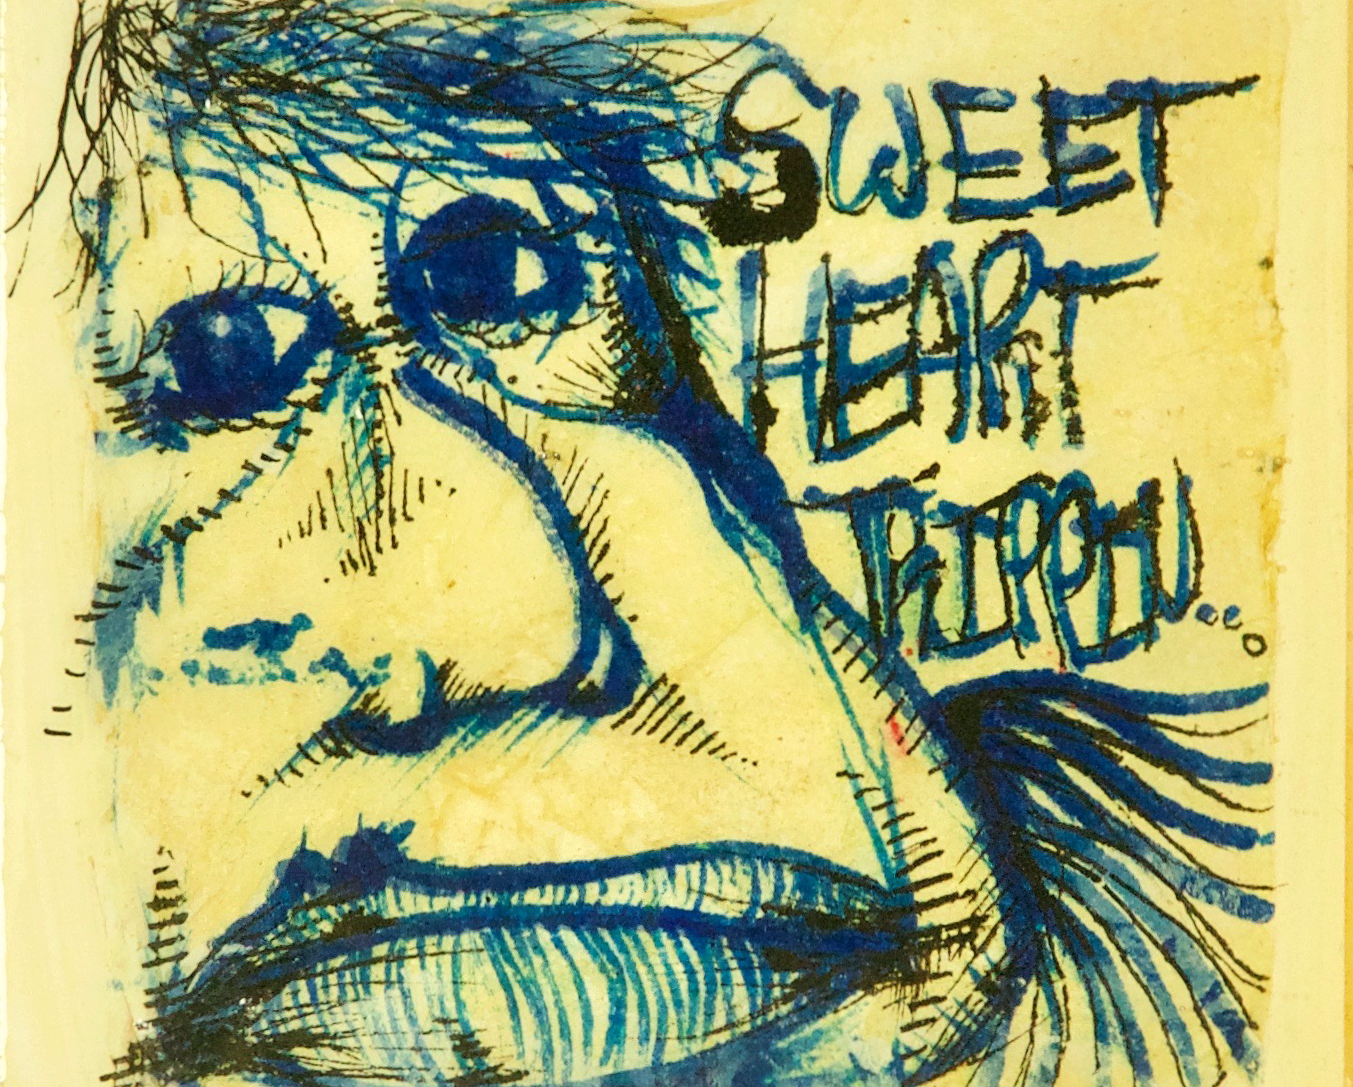 SWEET
HEART
TRIPPIN...